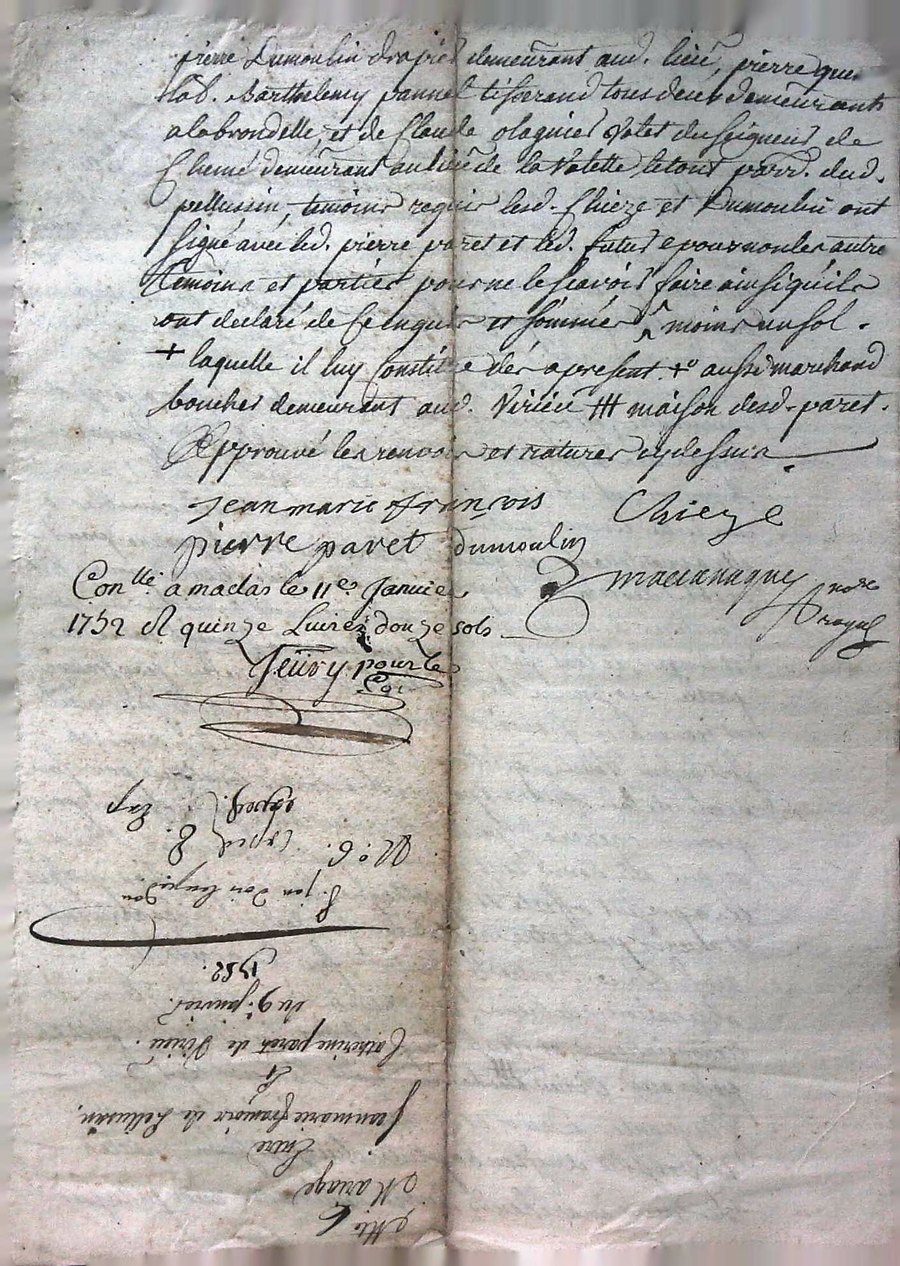 pierre Dumoulin drapier demeurant aud. lieu, pierre que
lab. Barthelemy pannel tisserand tous deux demeurants
a labrondelle, et de Claude olagnier valet du seigneur de
demeurant au lieu de la Valette le tout parr. dud.
pellussin, temoins requis lesd. Chieze et Dumoulin ont
signé avec led. pierre paret et led. futur epoux non les autres
temoins et parties pour ne le scavoir faire ainsi qu'ils
ont declaré de ce enquis et sommés moins un sol.
+ laquelle il luy constitue dès apresent +o aussi marchand
boucher demeurant aud. Virieu ttt maison desd. paret.
Approuvé les renvois et ratures cy dessus
jean marie françois Chieze
pierre paret dumoulin
Conllé a madas le 11e Janvier
1752 R quinze Livres douze sols
notre royal
pour le
N:o 6. copié
exped.
Mariage
Entre
Jean marie françois de Pellussin,
Et
Catherine paret de Virieu.
du 9e janvier
1752.